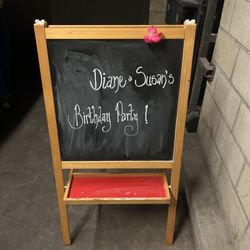 Diane & Susan's
Birthday Party!